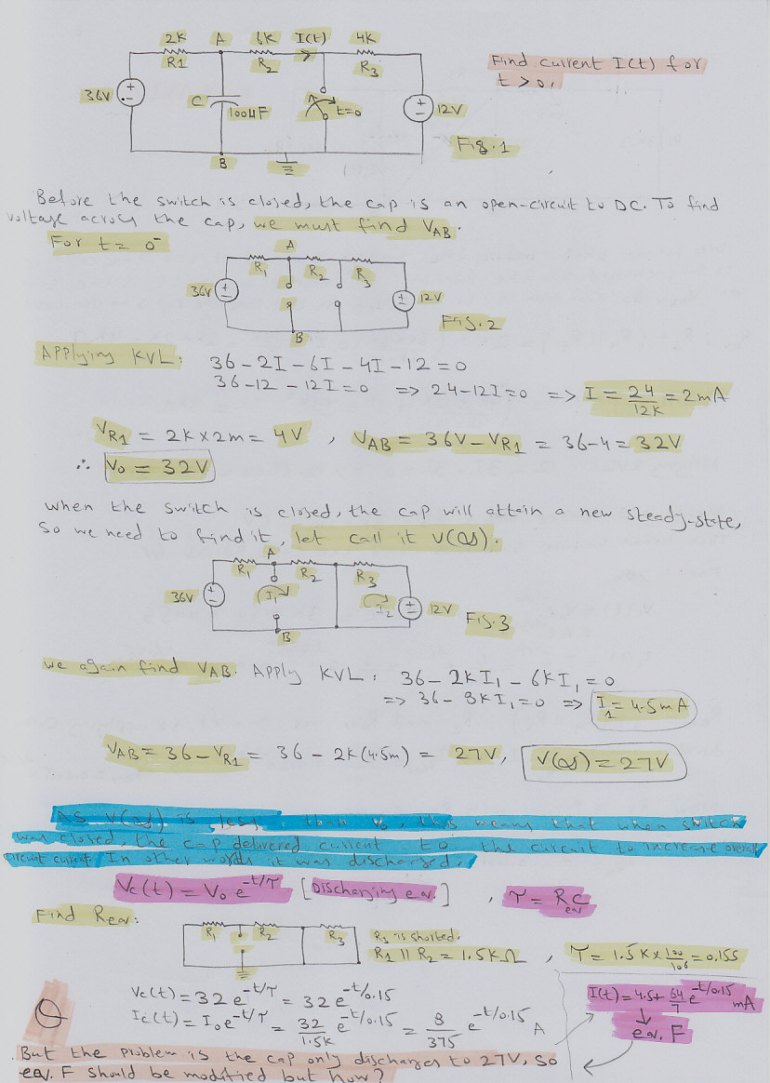 2K A 6K I(t) 4K
R1 R2 R3
Find current I(t) for
t > 0.
36V + - C 100μF t=0 + - 12V
B
Fig.1
Before the switch is closed, the cap is an open-circuit to DC. To find
voltage across the cap, we must find VAB.
For t = 0⁻
A
R1 R2 R3
36V + - 12V
B
Fig.2
Applying KVL: 36 - 2I - 6I - 4I - 12 = 0
36 - 12 - 12I = 0 => 24 - 12I = 0 => I = 24/12K = 2mA
VR1 = 2K x 2m = 4V , VAB = 36V - VR1 = 36 - 4 = 32V
∴ V0 = 32V
When the switch is closed, the cap will attain a new steady-state,
so we need to find it, let call it V(∞).
A
R1 R2 R3
36V + - I1 I2 12V
B
Fig.3
We again find VAB. Apply KVL: 36 - 2KI1 - 6KI1 = 0
=> 36 - 8KI1 = 0 => I1 = 4.5mA
VAB = 36 - VR1 = 36 - 2K(4.5m) = 27V, V(∞) = 27V
As V(∞) is less than V0, this means that when switch
was closed, the cap delivered current to the circuit to increase overall
circuit current. In other words it was discharged.
Vc(t) = V0 e^-t/τ [Discharging eq.] , τ = Req C
Find Req:
R1 R2 R3
R3 is shorted.
R1 || R2 = 1.5KΩ , τ = 1.5K x 100/10⁶ = 0.15S
Vc(t) = 32 e^-t/τ = 32 e^-t/0.15
Ic(t) = I0 e^-t/τ = 32/1.5K e^-t/0.15 = 8/375 e^-t/0.15 A
I(t) = 4.5 + 64/7 e^-t/0.15 mA
eq. F
Q
But the problem is the cap only discharges to 27V, so
eq. F should be modified but how?